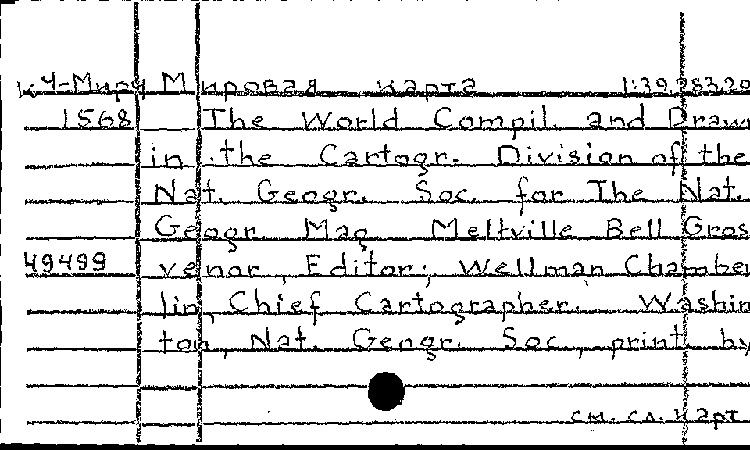 к Ч-Миру Мировая карта 1:39,283,20
1568 The World Compil. and Drawn
in the Cartogr. Division of the
Nat. Geogr. Soc. for The Nat.
Geogr. Mag. Meltville Bell Gros
49499 venor, Editor; Wellman Chamber
lin, Chief Cartographer. Washin
ton, Nat. Geogr. Soc., print. by
см. сл. карт